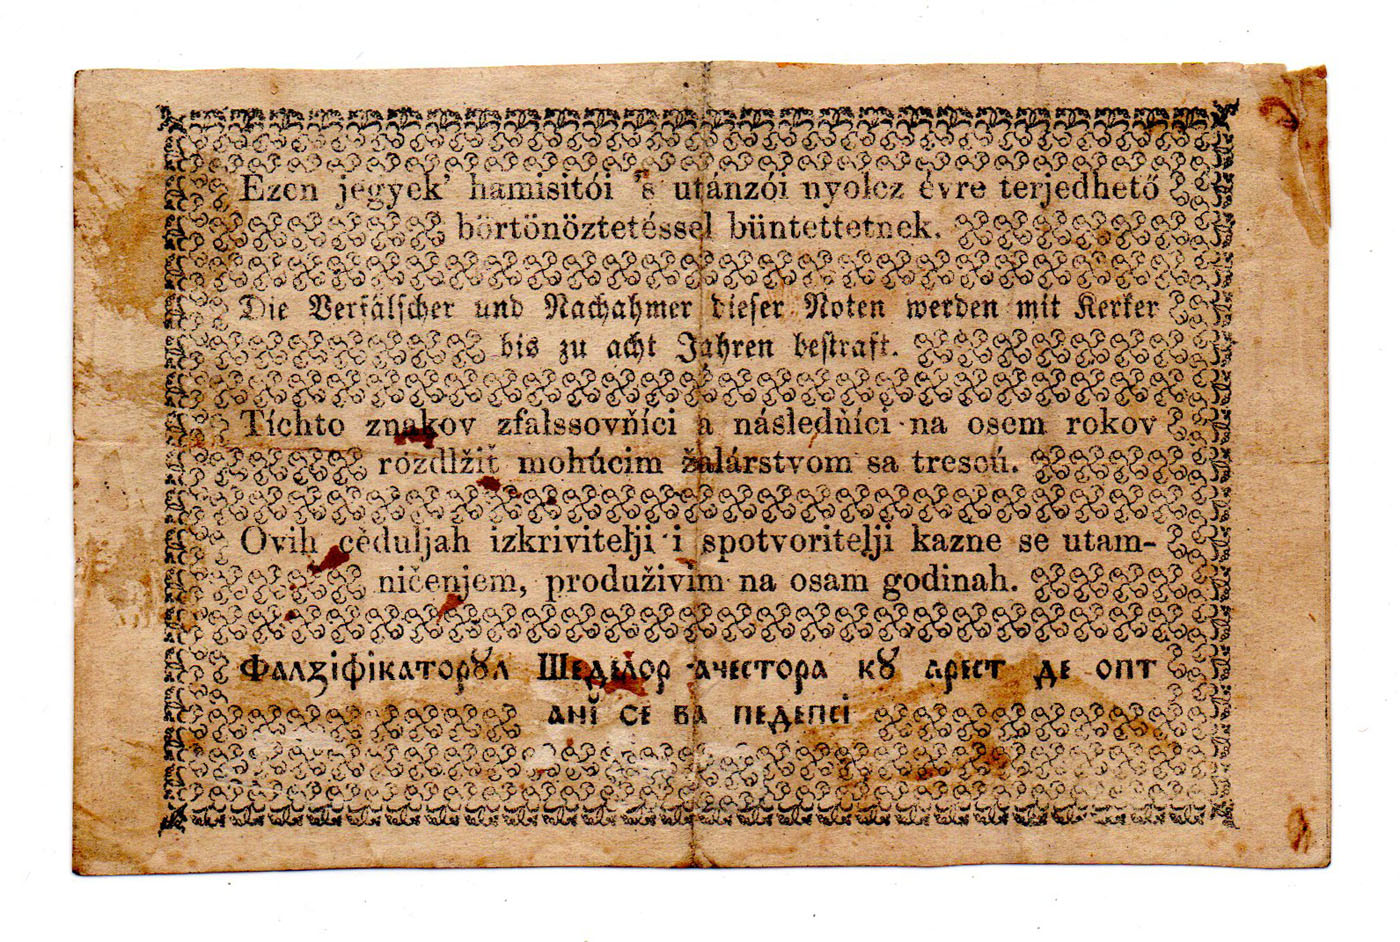 Ezen jegyek’ hamisitói ’s utánzói nyolcz évre terjedhető
börtönöztetéssel büntettetnek.
Die Verfälscher und Nachahmer dieser Noten werden mit Kerker
bis zu acht Jahren bestraft.
Tíchto znakov zfalssovňíci a následňíci na osem rokov
rozdlžiť mohúcim žalárstvom sa trescú.
Ovih ceduljah izkrivitelji i spotvoritelji kazne se utam-
ničenjem, produživim na osam godinah.
Фалꙁіфікаторꙋл Шеделор ачестора кꙋ арест де опт
анї се ва педепсі